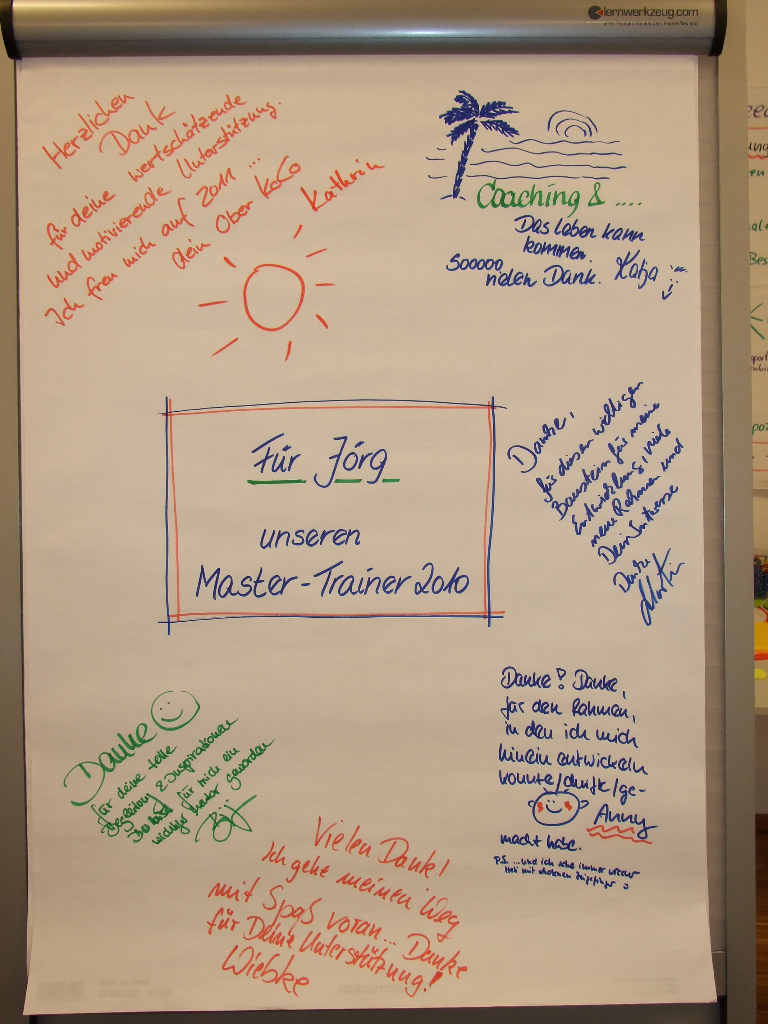 lernwerkzeug.com
Herzlichen
Dank
für deine wertschätzende
und motivierende Unterstützung.
Ich freu mich auf 2011 ...
dein Ober KoCo
Kathrin
Coaching & ....
Das Leben kann
kommen.
Sooooo
vielen Dank. Katja
Danke,
für diesen wichtigen
Baustein für meine
Entwicklung, viele
neue Rahmen und
Dein Interesse
Danke
Martin
Für Jörg
unseren
Master-Trainer 2010
Danke! Danke,
für den Rahmen,
in den ich mich
hinein entwickeln
konnte/durfte/ge-
Anny
macht habe.
P.S. ...und ich sehe immer wieder
hin mit erhobenen Zeigefinger
Danke
für deine tolle
Begleitung & Inspirationen
Du bist für mich ein
wichtiger geworden
Vielen Dank!
Ich gehe meinen Weg
mit Spaß voran... Danke
für Deine Unterstützung!
Wiebke